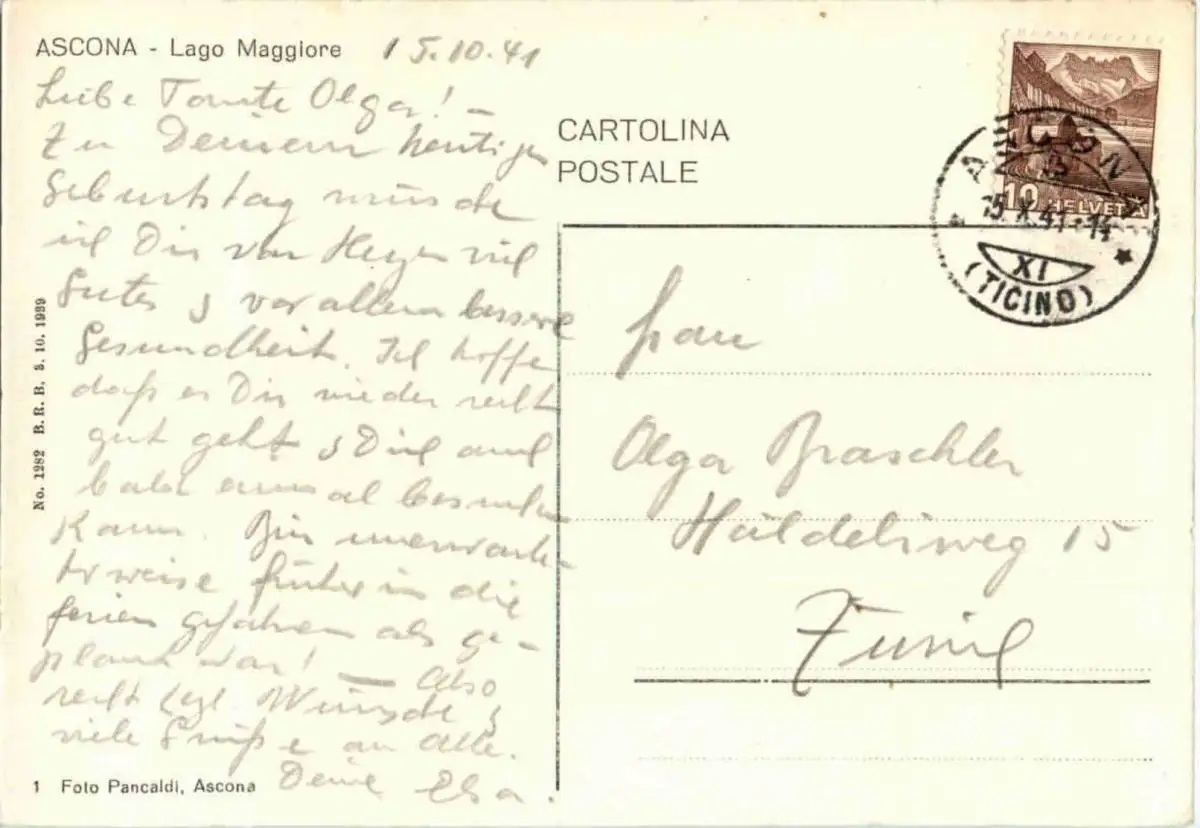 ASCONA - Lago Maggiore 15.10.41
Liebe Tante Olga! -
Zu Deinem heutigen
Geburtstag wünsche
ich Dir von Herzen viel
Gutes & vor allem bessere
Gesundheit. Ich hoffe
daß es Dir wieder recht
gut geht & Dich auch
bald einmal besuchen
kann. Bin unerwarte-
terweise früher in die
Ferien gefahren als ge-
plant war! — Also
recht hzl Wünsche &
viele Grüße an Alle.
Deine Elsa.
1 Foto Pancaldi, Ascona
No. 1282 B.R.B. 3. 10. 1939
CARTOLINA
POSTALE
10 HELVETIA
15.X.41-14
XI
(TICINO)
Frau
Olga Braschler
Häldeliweg 15
Zürich